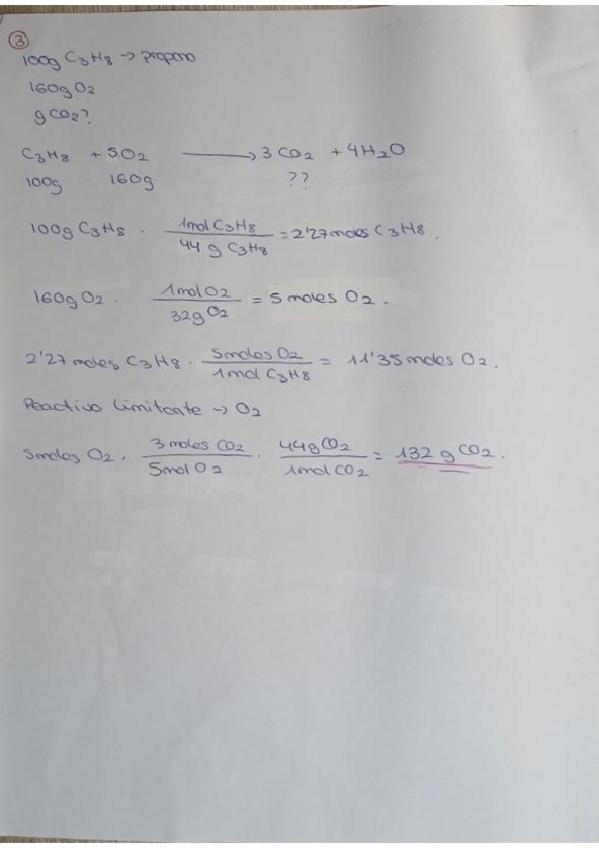 ③
100g C3H8 → propano
160g O2
g CO2?
C3H8 + 5O2 → 3 CO2 + 4H2O
100g 160g ??
100g C3H8 · 1mol C3H8 / 44 g C3H8 = 2'27 moles C3H8.
160g O2 · 1mol O2 / 32g O2 = 5 moles O2.
2'27 moles C3H8 · 5moles O2 / 1mol C3H8 = 11'35 moles O2.
Reactivo limitante → O2
5moles O2 · 3 moles CO2 / 5mol O2 · 44g CO2 / 1mol CO2 = 132 g CO2.